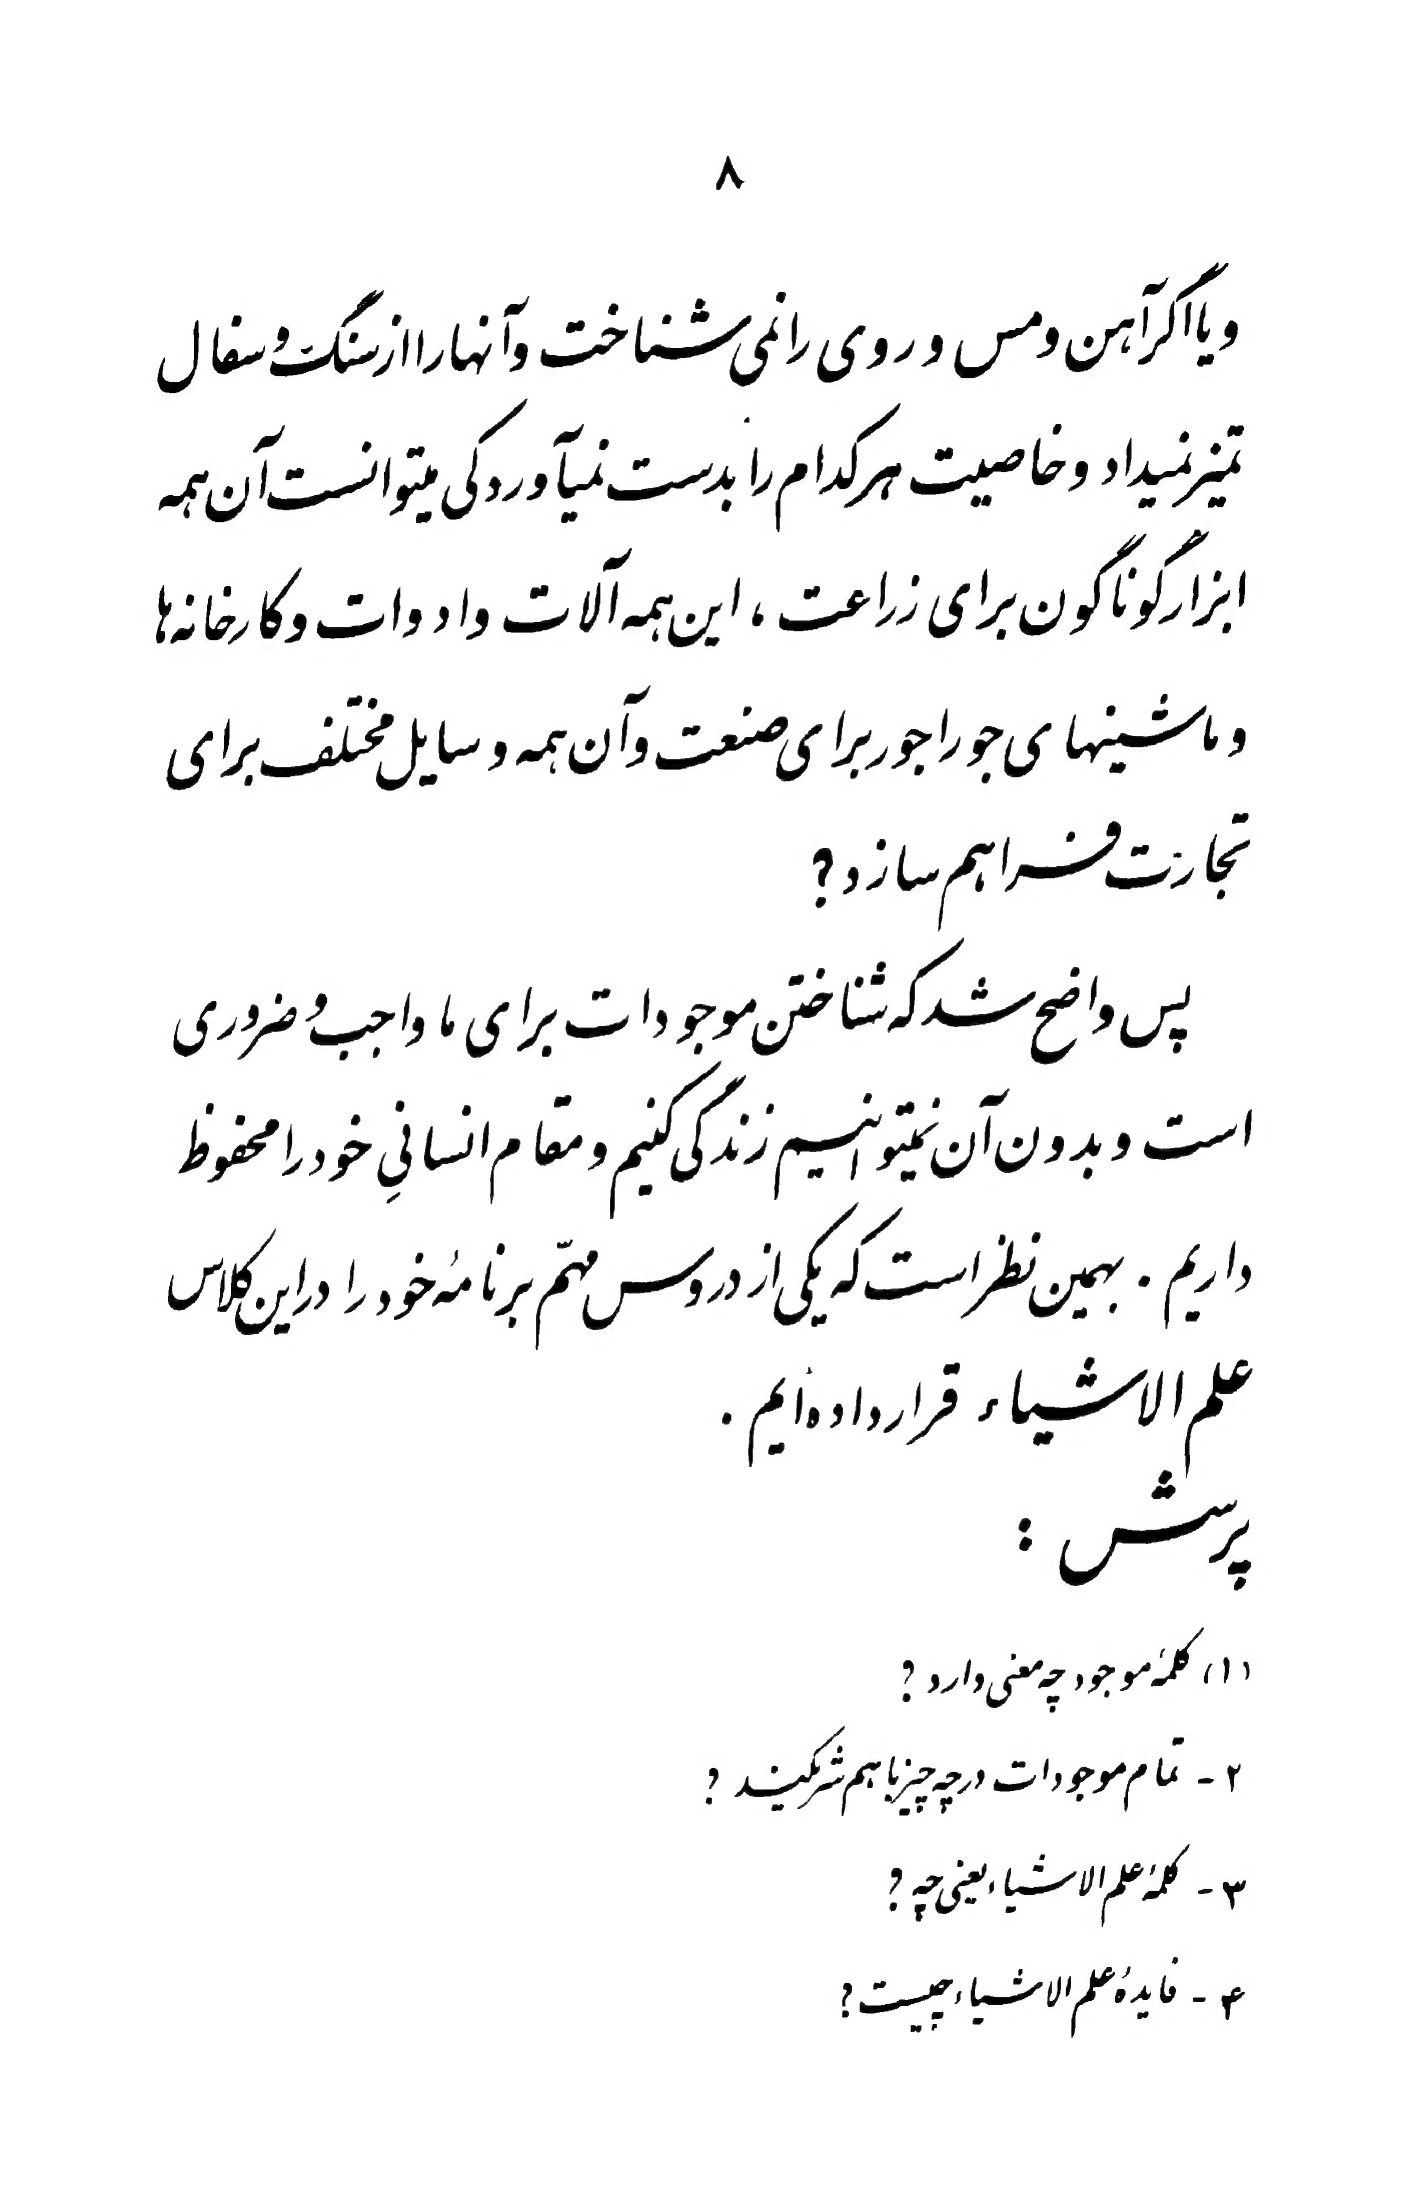 ۸
و یا اگر آهن و مس و روی را نمی شناخت و آنها را از سنگ و سفال
تمیز نمیداد و خاصیت هر کدام را بدست نمیآورد کی میتوانست آن همه
ابزار گوناگون برای زراعت ، این همه آلات و ادوات و کارخانه ها
و ماشینهای جوراجور برای صنعت و آن همه وسایل مختلف برای
تجارت فراهم سازد ؟
پس واضح شد که شناختن موجودات برای ما واجب و ضروری
است و بدون آن نمیتوانیم زندگی کنیم و مقام انسانیِ خود را محفوظ
داریم . بهمین نظر است که یکی از دروس مهّم برنامهٔ خود را در این کلاس
علم الاشیاء قرار داده‌ایم .
پرسش :
(۱) کلمهٔ موجود چه معنی دارد ؟
۲ - تمام موجودات در چه چیز با هم شریکند ؟
۳ - کلمهٔ علم الاشیاء یعنی چه ؟
۴ - فایدهٔ علم الاشیاء چیست ؟